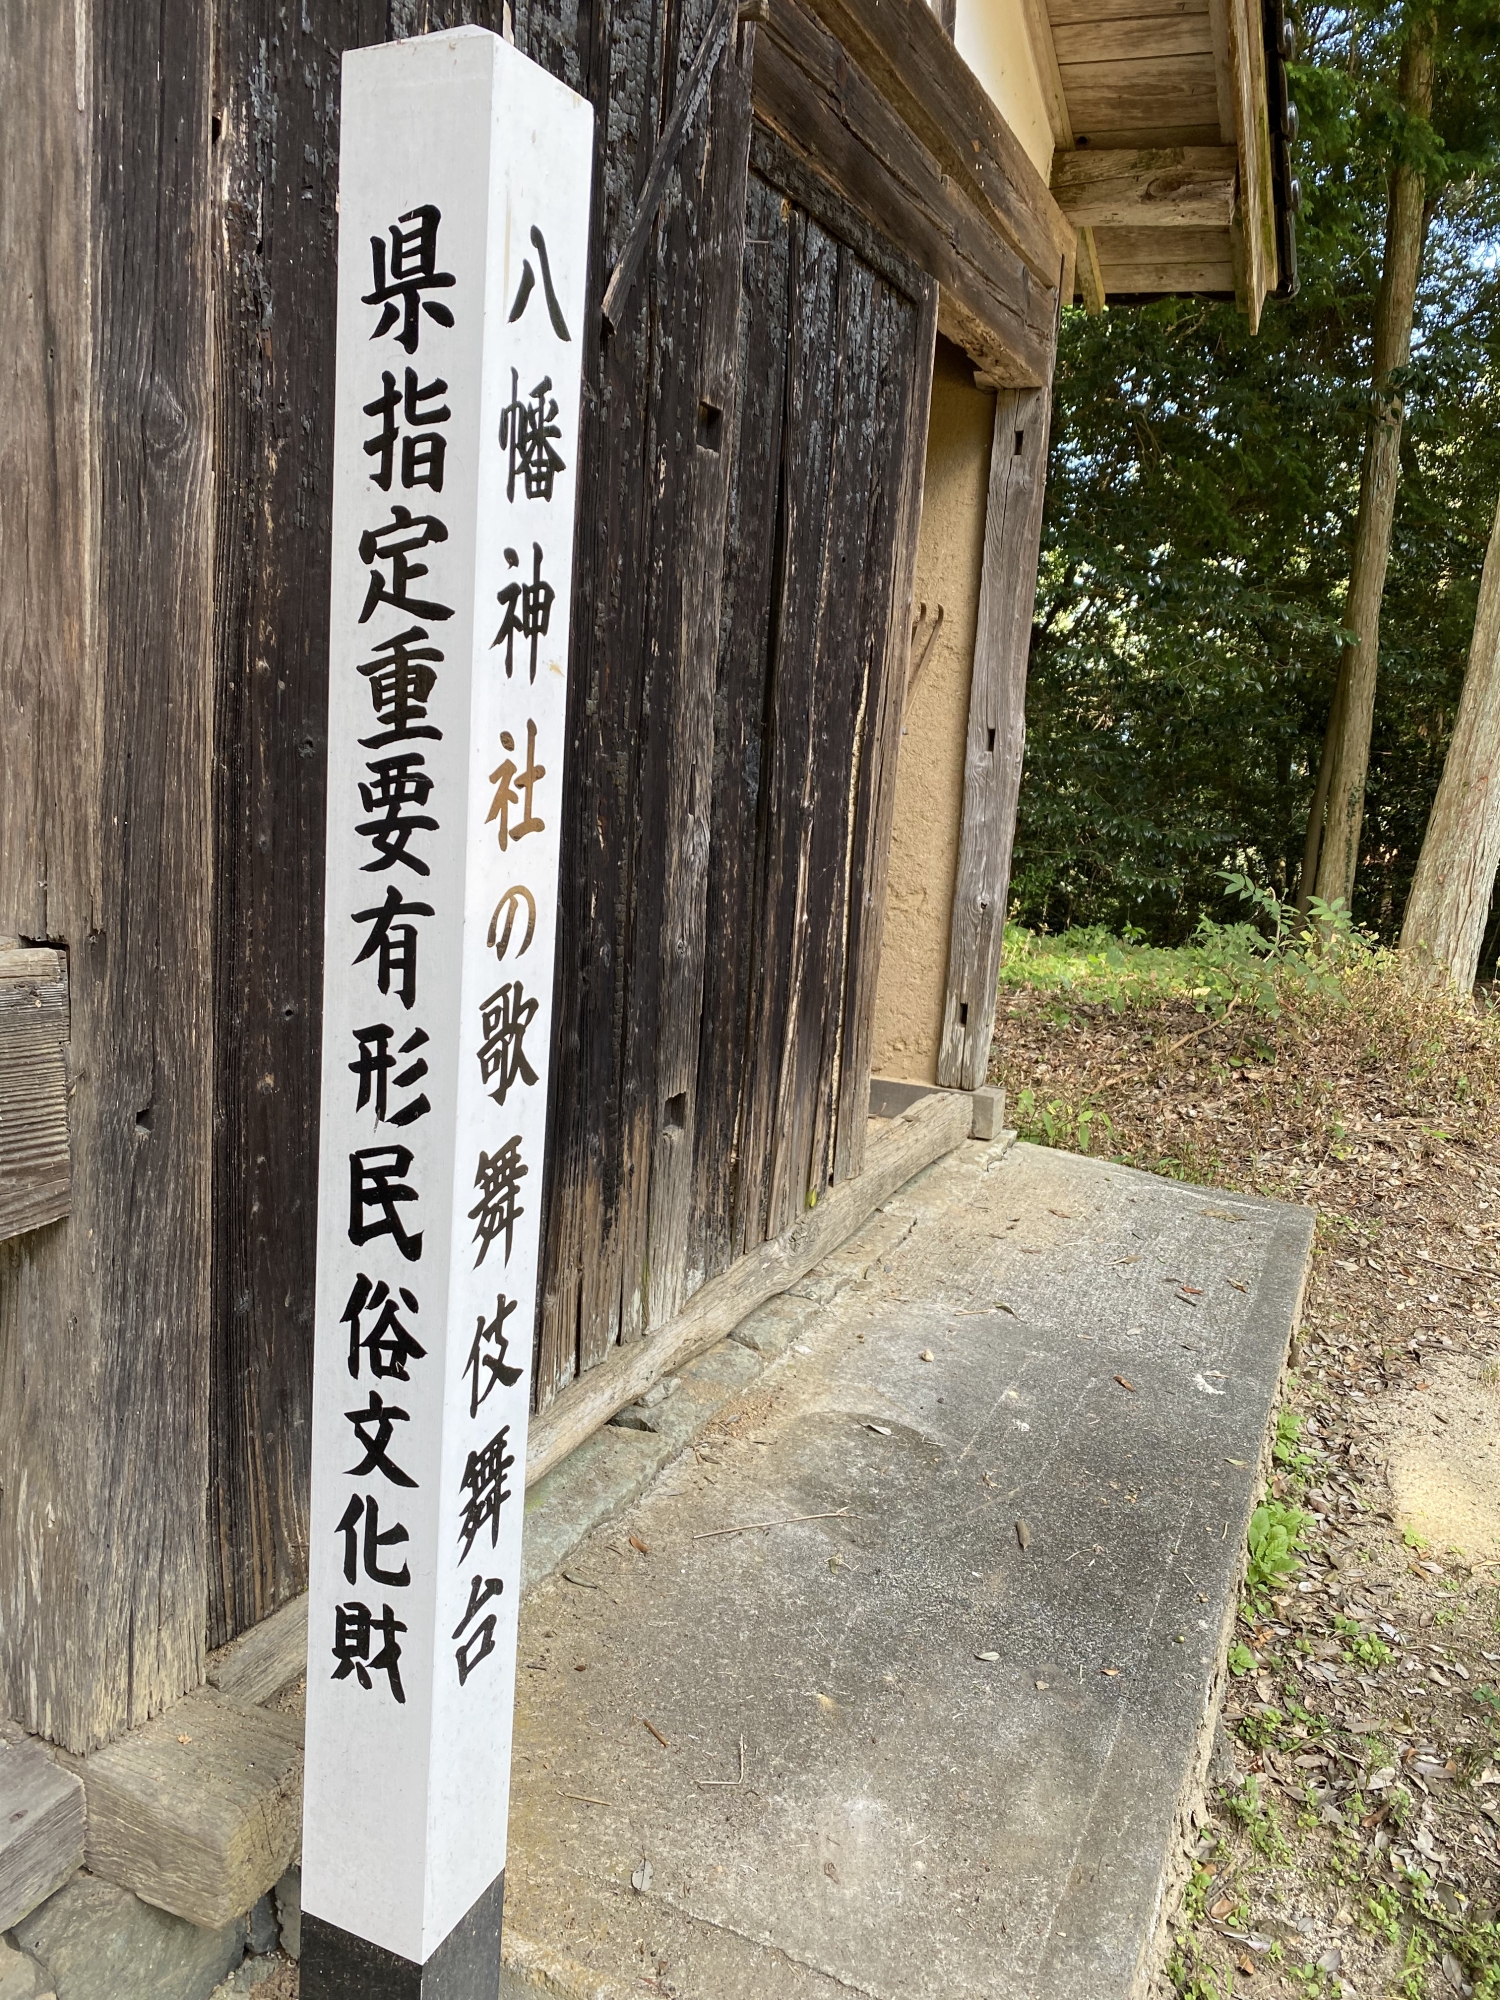 県指定重要有形民俗文化財
八幡神社の歌舞伎舞台